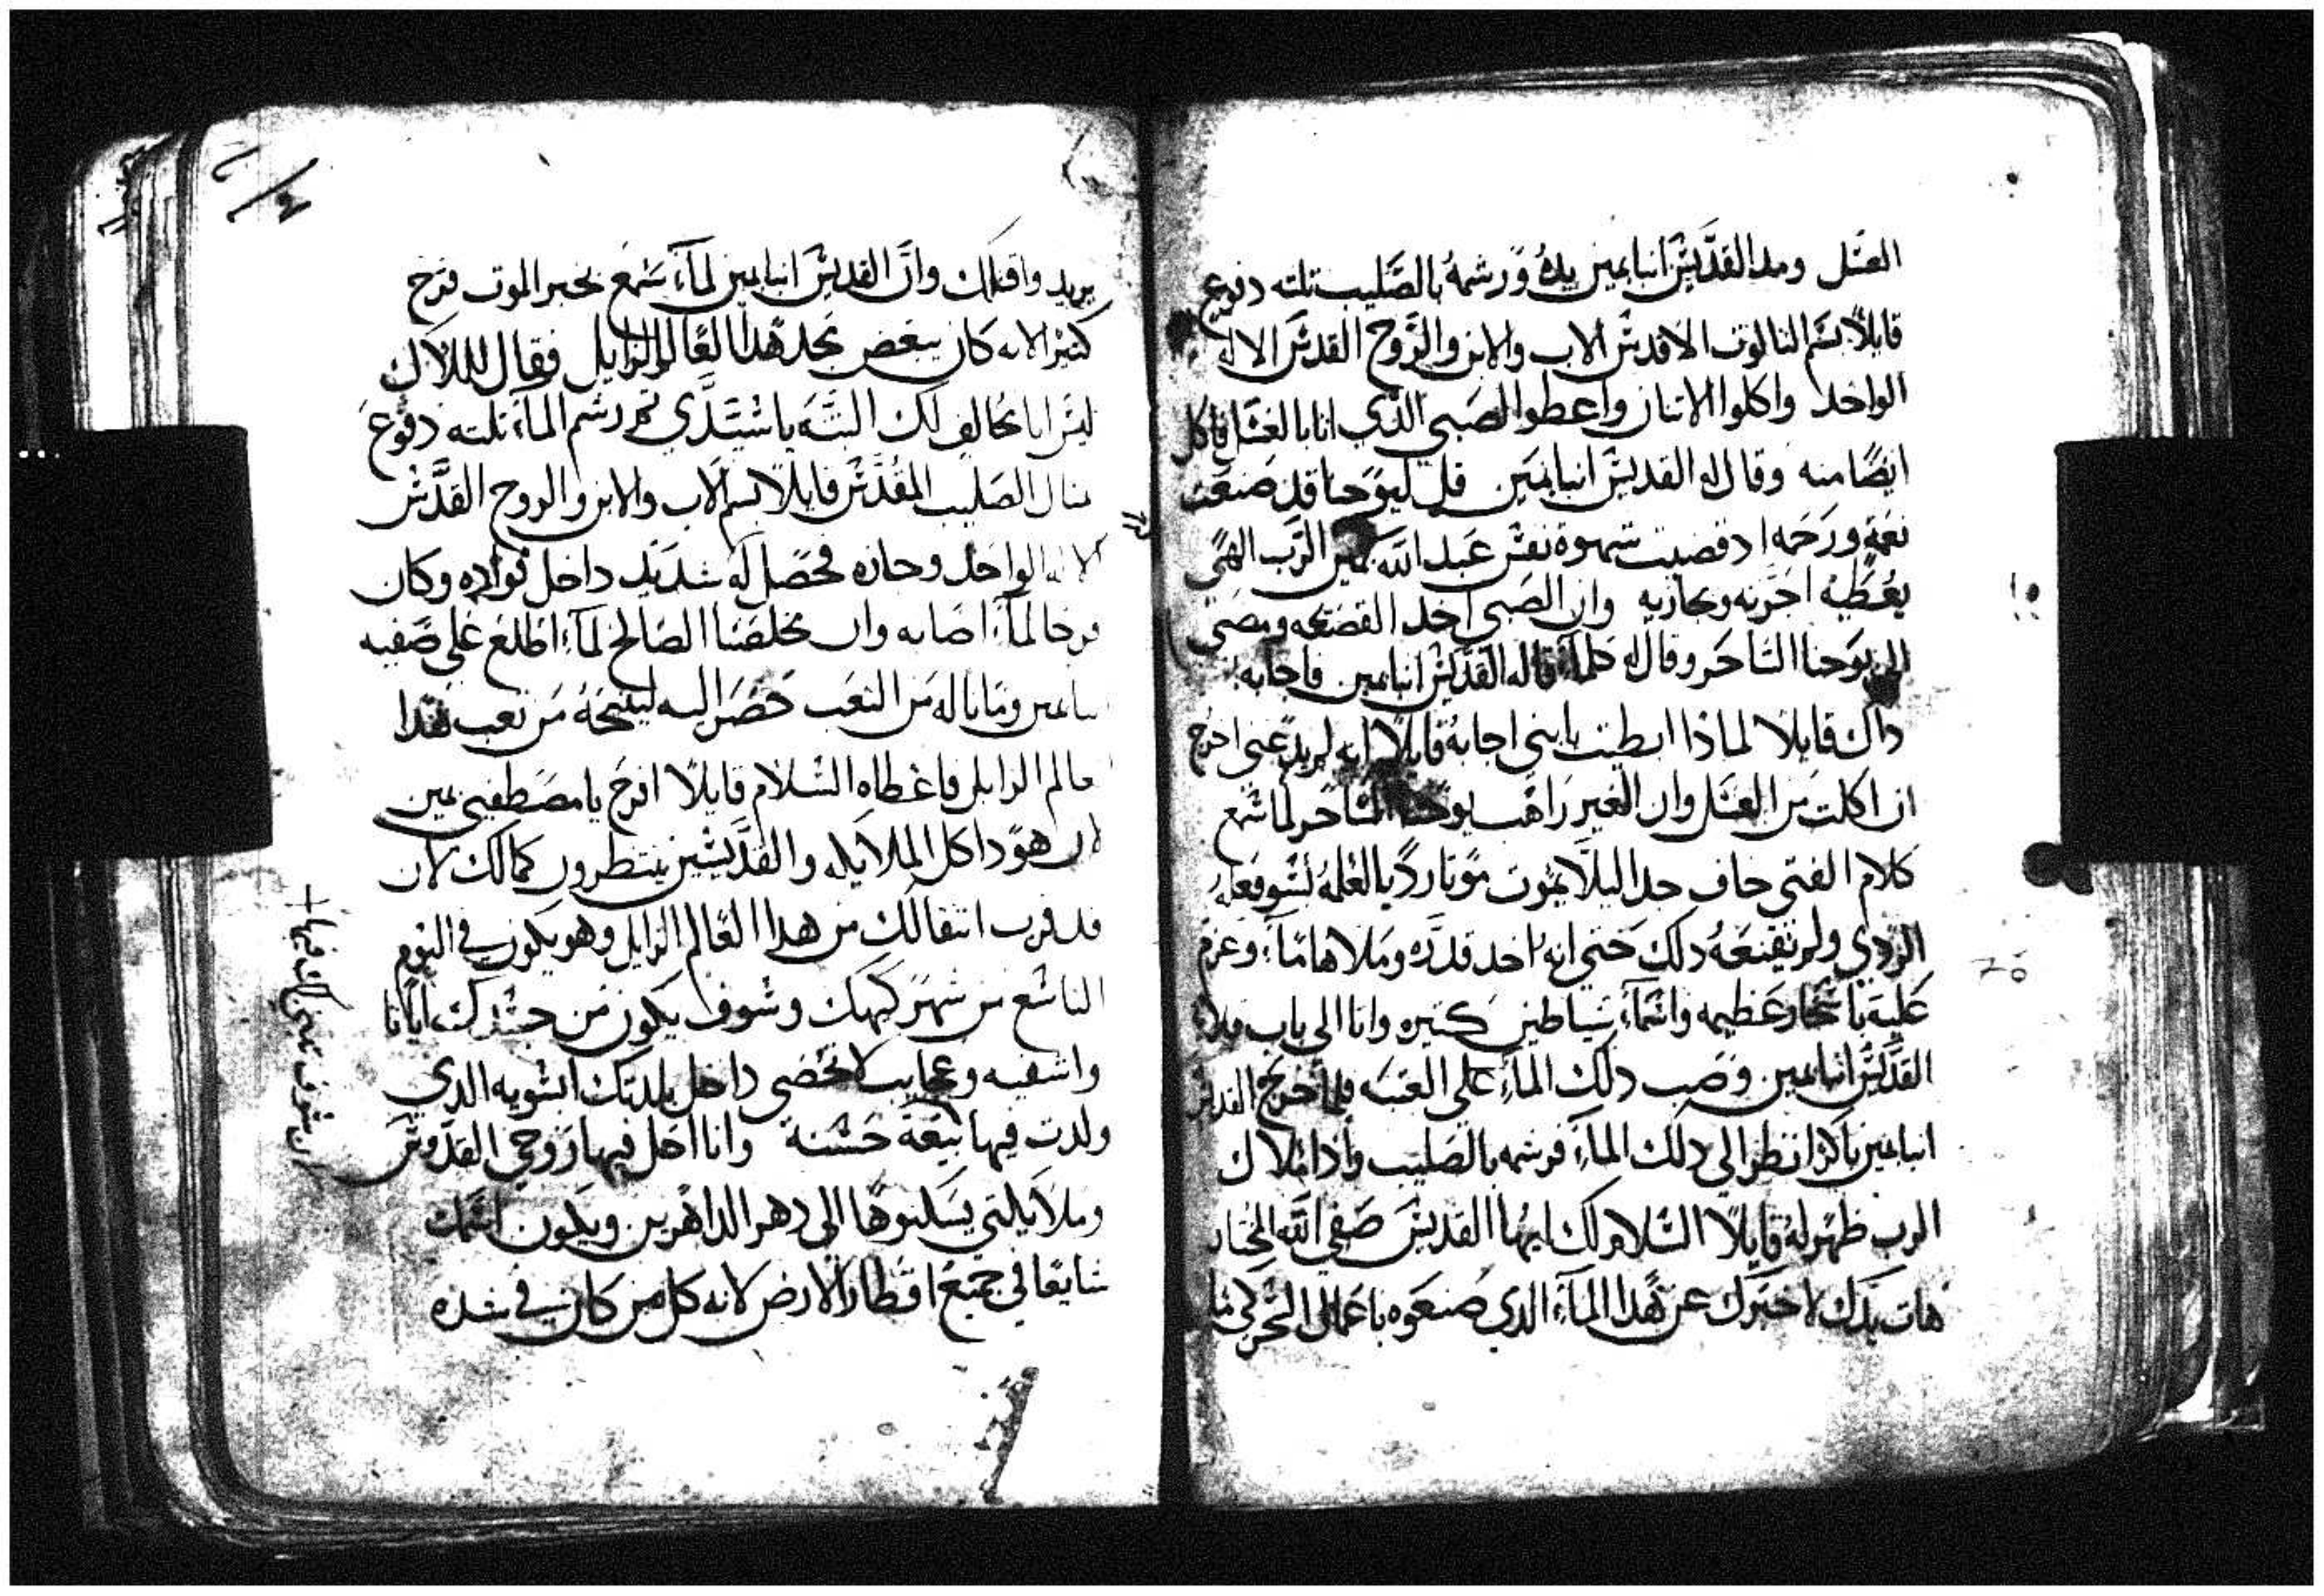 العسل ومد القديس انبا يمين يده ورشمه بالصليب تلته دفوع
قايلاً بسم التالوت الاقدس الاب والابن والروح القدس الاله
الواحد واكلوا الاتنان واعطوا الصبي الذي اتا بالعسل فاكل
ايضًا منه وقال له القديس انبا يمين قل ليوحنا قد صنعت
نعمة ورحمه اد قضيت شهوة نفس عبد الله يمين الرب الهي
يعطيه اجرته ويجازيه وان الصبي اخد القصعه ومضي
الي يوحنا الساحر وقال له كلما قاله القديس انبا يمين فاجابه
داك قايلا لماذا ابطيت يا بني اجابه قايلاً انه لم يدعني اخرج
ان اكلت من العسل وان الغير راهب يوحنا الساحر لما سمع
كلام الفتي خاف جدا ليلا يموت موتا رديا لعلة لسو فعله
الردي ولم تقنعه دلك حتي انه اخد قدره وملاها ماء وعزم
عليه باسحار عظيمه واسماء شياطين كتيره واتا الي باب قلاية
القديس انبا يمين وصب دلك الماء علي العتبه فلما خرج القديس
انبا يمين باكرا نظر الي دلك الماء فرشمه بالصليب واذا ملاك
الرب ظهر له قايلاً السلام لك ايها القديس صفي الله المختار
هات يدك لاخبرك عن هذا الماء الدي صنعوه باعمال السحر لي ما
يريد واقتلك وان القديس انبا يمين لماء سمع بخبر الموت فرح
كتيرا لانه كان يبغض مجد هدا العالم الزايل فقال للملاك
ليس انا مخالف لك البته يا سيدي تم رشم الماء تلته دفوع
متال الصليب المقدس قايلاً بسم الاب والابن والروح القدس
الاله الواحد وجازه فحصل له شديد داخل فواده وكان
فرحا لماء اصابه وان مخلصنا الصالح لماء اطلع علي صفيه
انبا يمين وما ناله من التعب حضر اليه لينيحه من تعب هدا
العالم الزايل فاعطاه السلام قايلاً افرح يا مصطفيي يمين
ان هودا كل الملايكه والقديسين ينتظرون كمالك لان
قد قرب انتقالك من هدا العالم الزايل وهو يكون في اليوم
التاسع من شهر كيهك وسوف يكون من جسدك ايانا
واشفيه وعجايب لا تحصي داخل بلدتك ابشويه الدي
ولدت فيها بيعة حسنة وانا احل فيها روحي القدوس
وملايكتي يسكنوها الي دهر الداهرين ويكون اسمك
شايعا في جميع اقطار الارض لانه كل من كان في شده
ان سوف تبني لك فيها